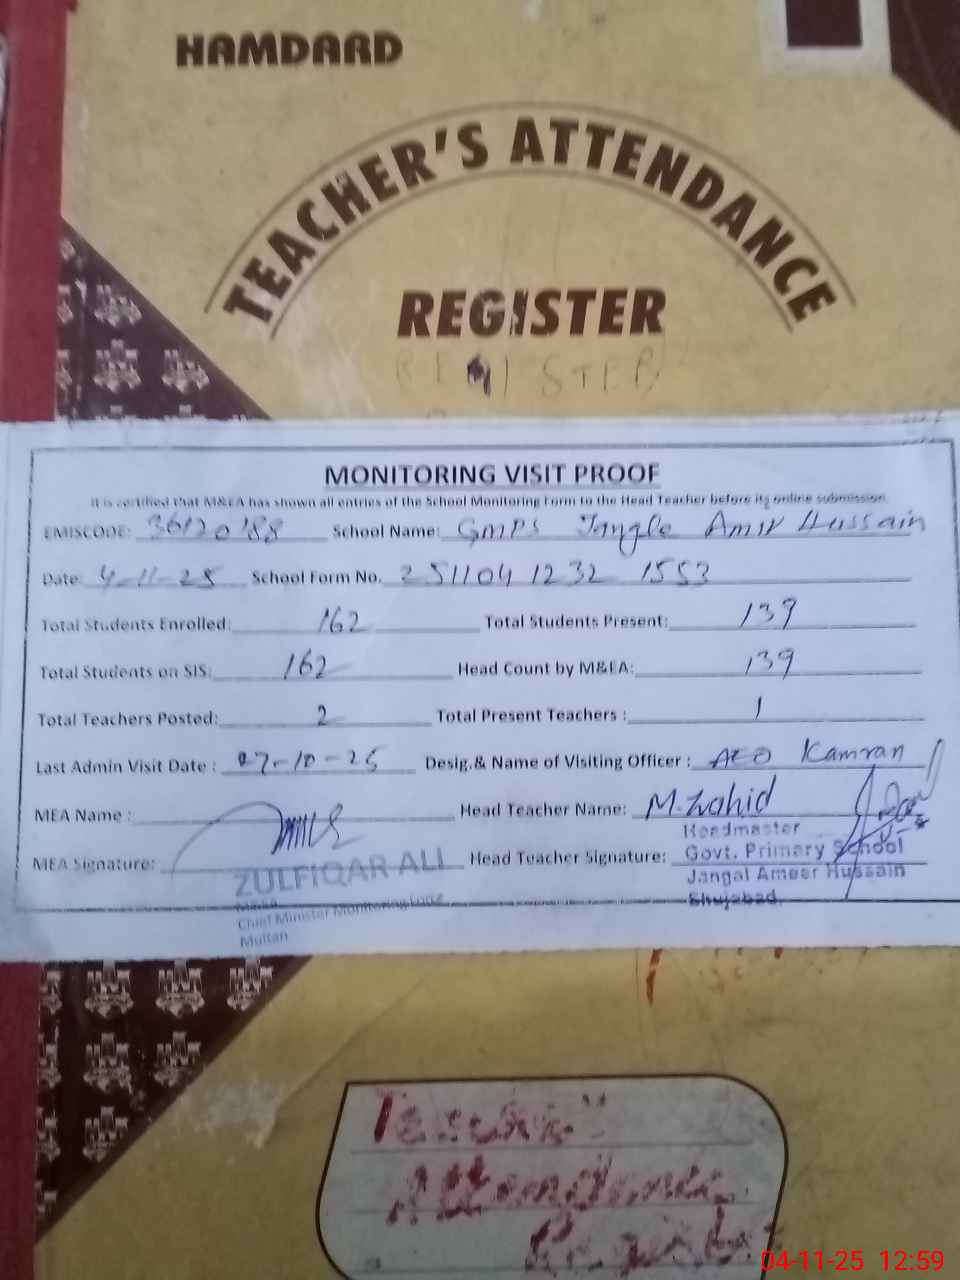 HAMDARD
TEACHER'S ATTENDANCE
REGISTER
REGISTER
MONITORING VISIT PROOF
It is certified that M&EA has shown all entries of the School Monitoring Form to the Head Teacher before its online submission.
EMISCODE: 36120188 School Name: GMPS Jangle Amir Hussain
Date: 4-11-25 School Form No. 251104 1232 1553
Total Students Enrolled: 162 Total Students Present: 139
Total Students on SIS: 162 Head Count by M&EA: 139
Total Teachers Posted: 2 Total Present Teachers : 1
Last Admin Visit Date : 27-10-25 Desig.& Name of Visiting Officer : AEO Kamran
MEA Name : Head Teacher Name: M. Zahid
MEA Signature: Head Teacher Signature:
Headmaster
Govt. Primary School
Jangal Ameer Hussain
Shujabad.
ZULFIQAR ALI
M&EA
Chief Minister Monitoring Force
Multan
Teacher's
Attendance
Register
04-11-25 12:59